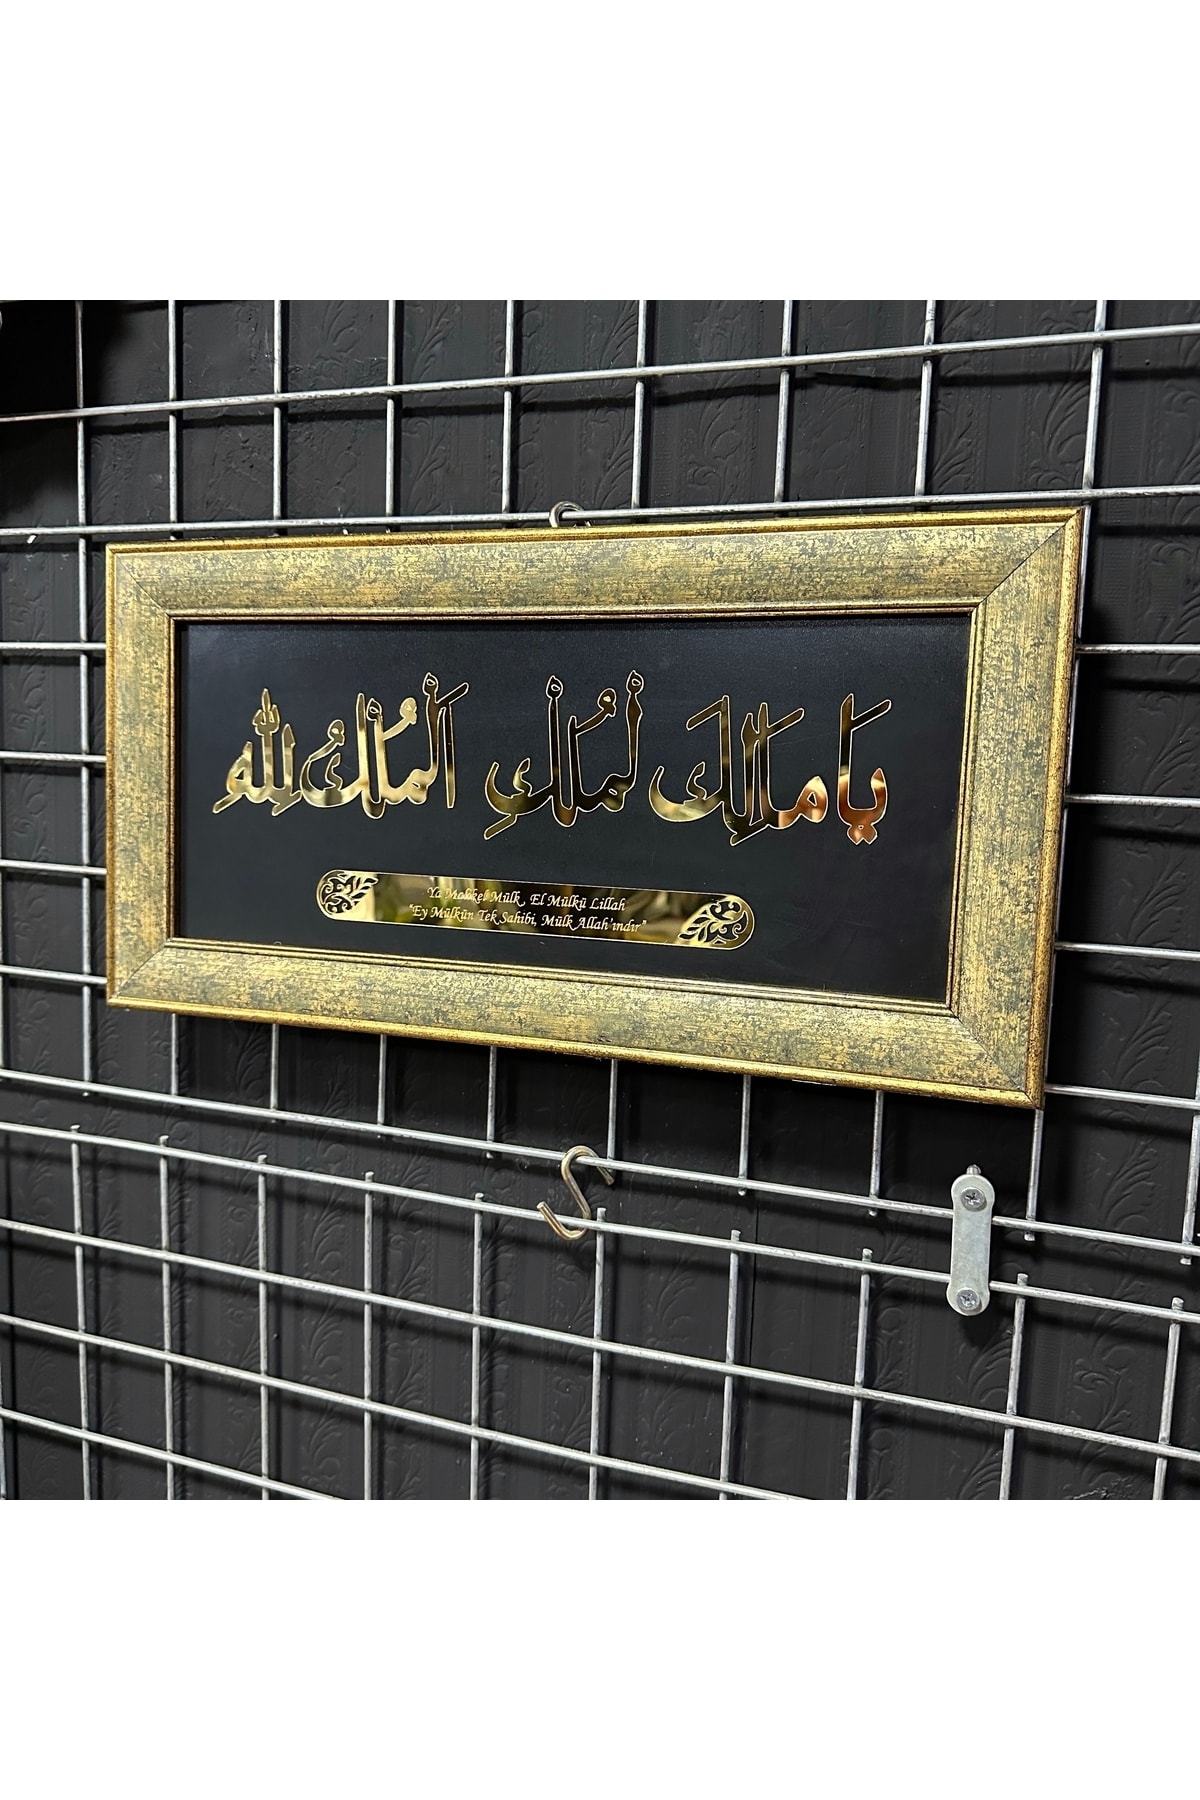 يا مالك لملك الملك لله
Ya Malikel Mülk, El Mülkü Lillah
"Ey Mülkün Tek Sahibi, Mülk Allah'ındır"